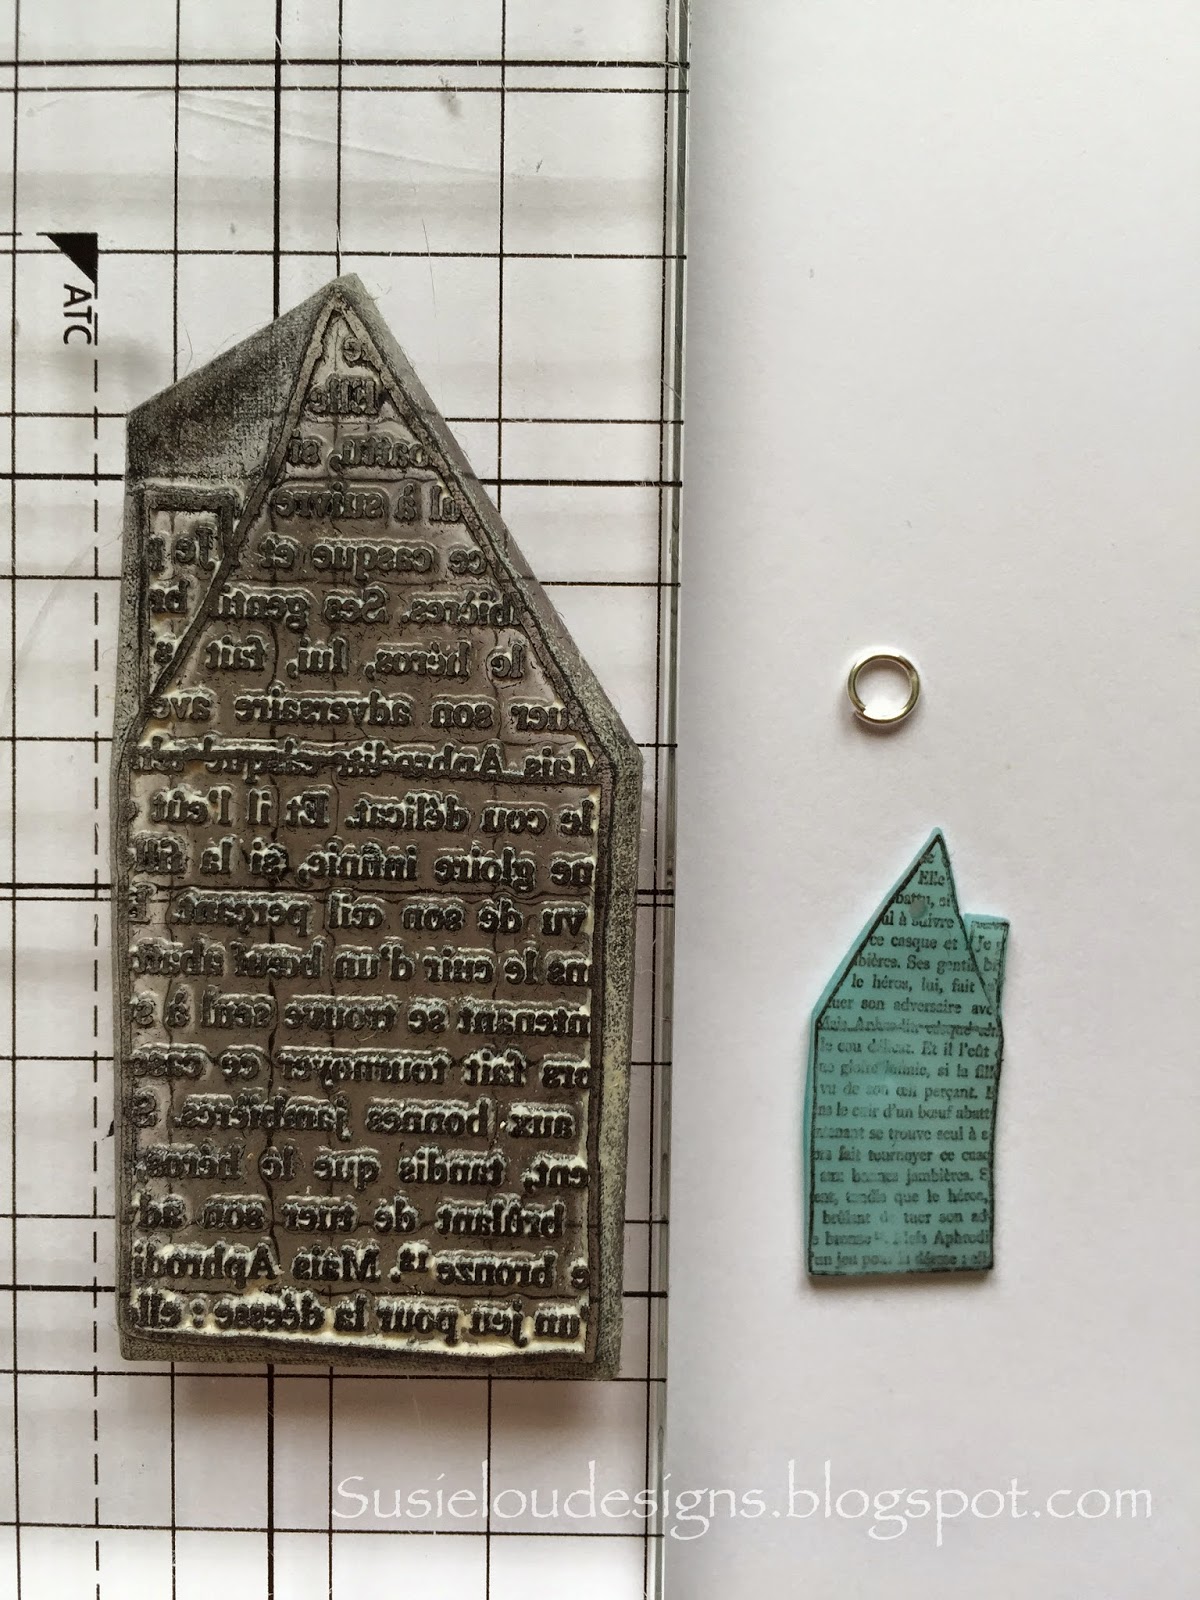 ATC
Elle
battu, si
ul à suivre
ce casque et Je
bières. Ses gentil
le héros, lui, fait
tuer son adversaire ave
Mais Aphrodite casque
le cou délicat. Et il l'eût
ne gloire infinie, si la fill
vu de son œil perçant.
ns le cuir d'un bœuf abatt
ntenant se trouve seul à s
ors fait tournoyer ce casq
aux bonnes jambières. S
ent, tandis que le héros,
brûlant de tuer son ad
e bronze¹⁸. Mais Aphrodi
'un jeu pour la déesse : elle
Elle
battu, si
ul à suivre
ce casque et Je
bières. Ses gentil
le héros, lui, fait
tuer son adversaire ave
Mais Aphrodite casque
le cou délicat. Et il l'eût
ne gloire infinie, si la fill
vu de son œil perçant.
ns le cuir d'un bœuf abatt
ntenant se trouve seul à s
ors fait tournoyer ce casq
aux bonnes jambières. S
ent, tandis que le héros,
brûlant de tuer son ad
e bronze¹⁸. Mais Aphrodi
'un jeu pour la déesse : elle
Susieloudesigns.blogspot.com